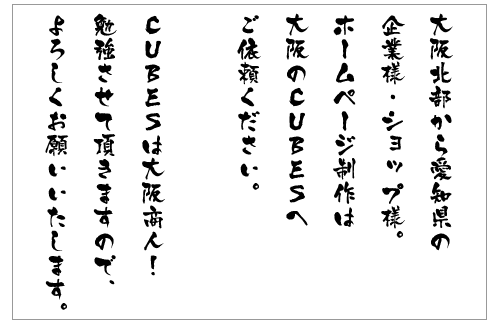 大阪北部から愛知県の
企業様・ショップ様。
ホームページ制作は
大阪のCUBESへ
ご依頼ください。
CUBESは大阪商人！
勉強させて頂きますので、
よろしくお願いいたします。